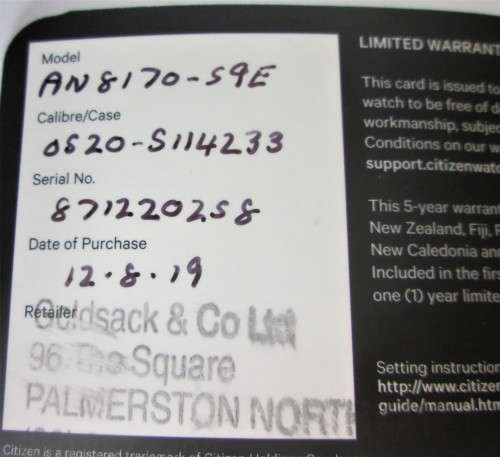 Model
AN8170-59E
Calibre/Case
0520-S114233
Serial No.
871220258
Date of Purchase
12.8.19
Retailer
Goldsack & Co Ltd
96 The Square
PALMERSTON NORTH
LIMITED WARRANT
This card is issued to
watch to be free of d
workmanship, subje
Conditions on our w
support.citizenwatc
This 5-year warrant
New Zealand, Fiji, F
New Caledonia an
Included in the firs
one (1) year limite
Setting instruction
http://www.citizen
guide/manual.htm
Citizen is a registered trademark of Citizen Holdings